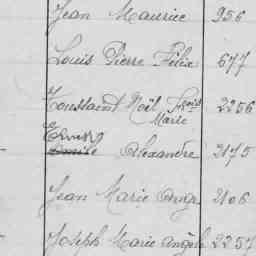 Jean Maurice 956
Louis Pierre Félix 677
Toussaint Noël Frois 2256
Marie
Ernest
Emile Alexandre 2175
Jean Marie Ange 2106
Joseph Marie Angèle 2257